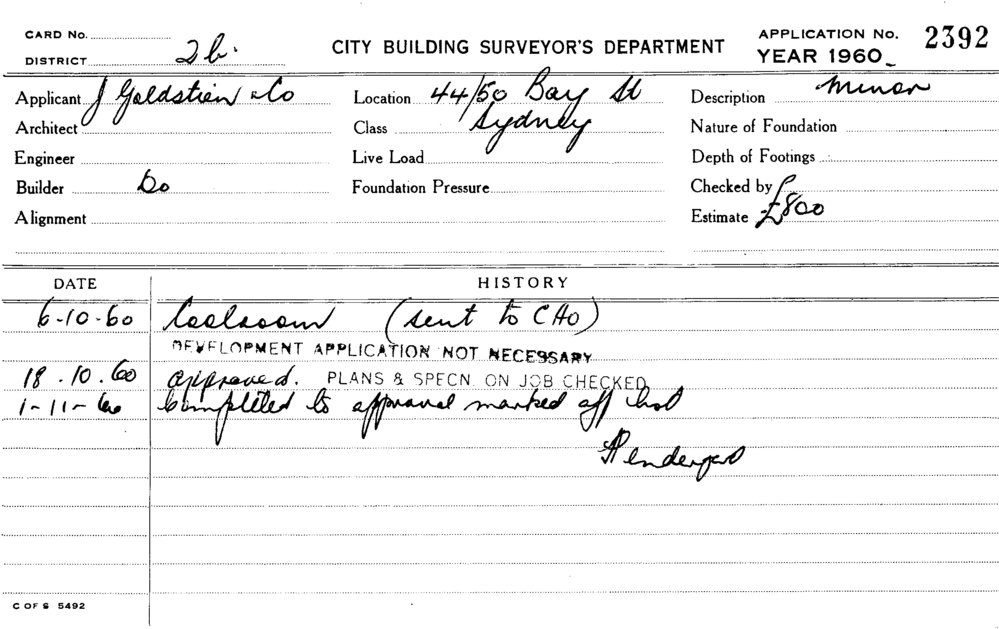 CARD No.
DISTRICT 2b.
CITY BUILDING SURVEYOR'S DEPARTMENT
APPLICATION No. 2392
YEAR 1960
Applicant J Goldstien & Co
Location 44/50 Bay St
Description Minor
Architect
Class Sydney
Nature of Foundation
Engineer
Live Load
Depth of Footings
Builder Do
Foundation Pressure
Checked by
Alignment
Estimate £800
DATE HISTORY
6-10-60 Coolroom (sent to CHO)
DEVELOPMENT APPLICATION NOT NECESSARY
18.10.60 approved. PLANS & SPECN. ON JOB CHECKED
1-11-60 Completed to approval marked off
C OF S 5492